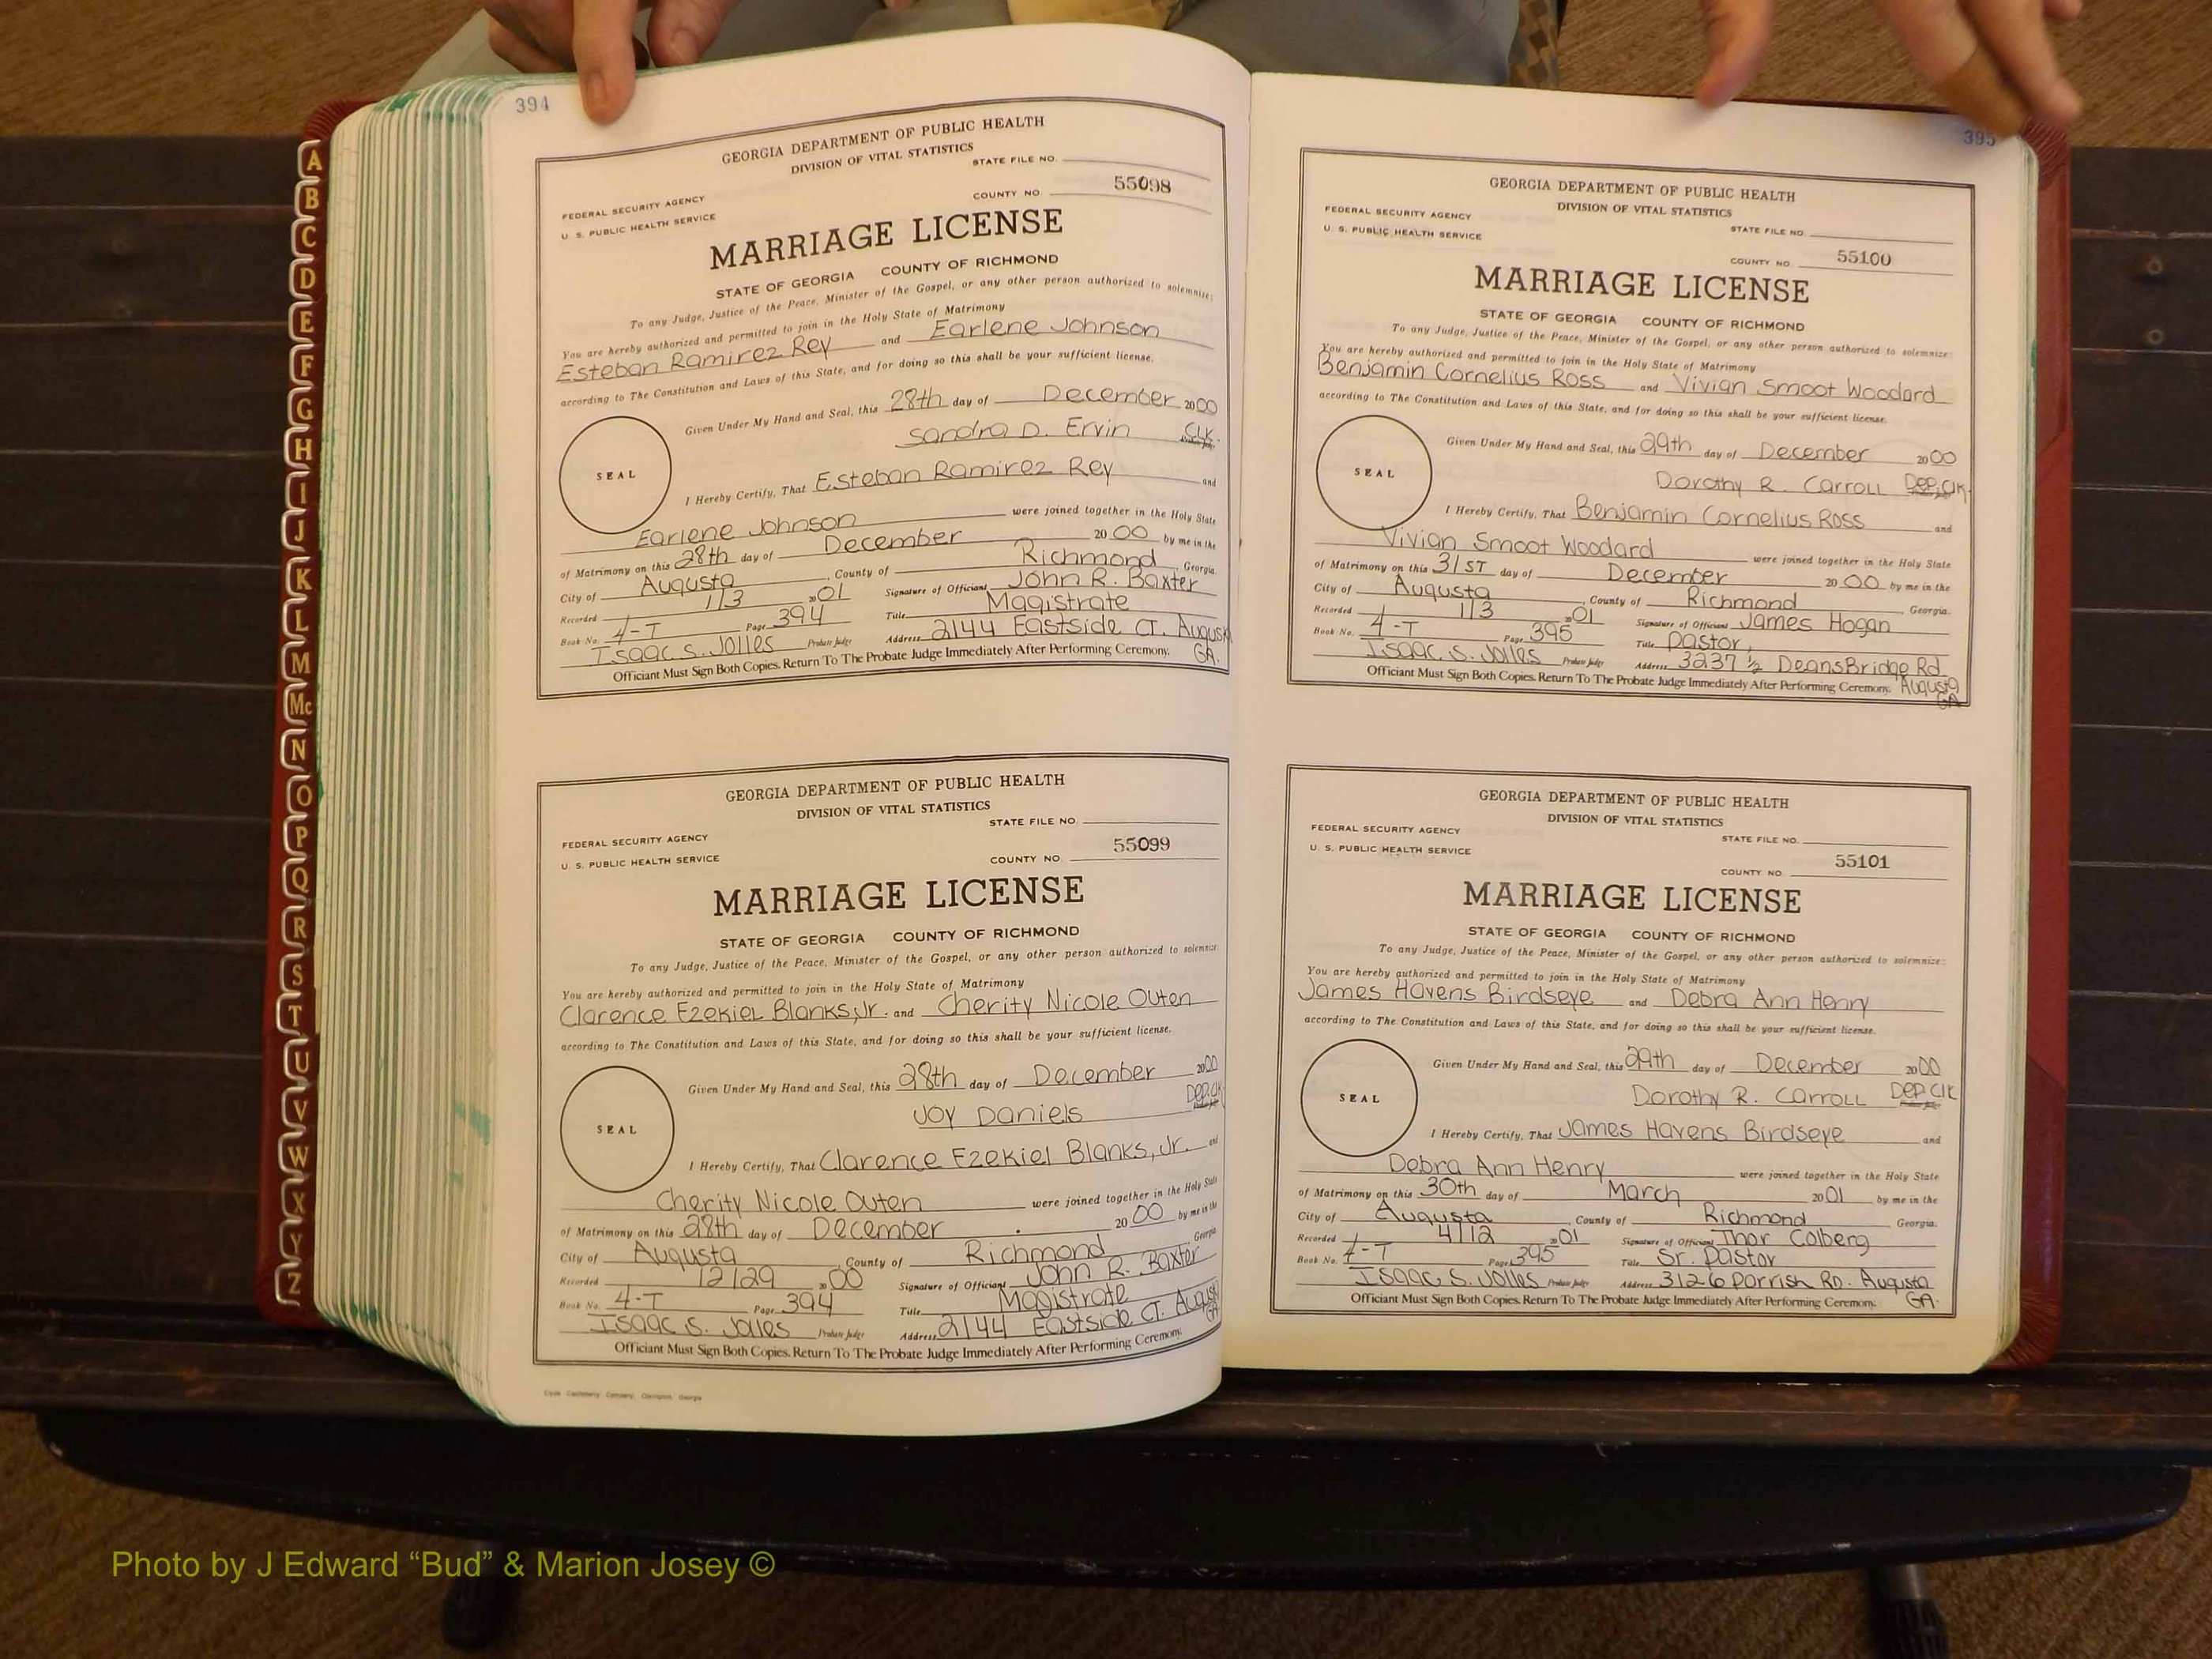 394
GEORGIA DEPARTMENT OF PUBLIC HEALTH
DIVISION OF VITAL STATISTICS
STATE FILE NO.
FEDERAL SECURITY AGENCY
U. S. PUBLIC HEALTH SERVICE
COUNTY NO. 55098
MARRIAGE LICENSE
STATE OF GEORGIA COUNTY OF RICHMOND
To any Judge, Justice of the Peace, Minister of the Gospel, or any other person authorized to solemnize:
You are hereby authorized and permitted to join in the Holy State of Matrimony
Esteban Ramirez Rey and Earlene Johnson
according to The Constitution and Laws of this State, and for doing so this shall be your sufficient license.
Given Under My Hand and Seal, this 28th day of December 2000
Sandra D. Ervin CLK.
SEAL
I Hereby Certify, That Esteban Ramirez Rey and
Earlene Johnson were joined together in the Holy State
of Matrimony on this 28th day of December 2000 by me in the
City of Augusta, County of Richmond, Georgia.
Recorded 1/3 2001 Signature of Officiant John R. Baxter
Book No. 4-T Page 394 Title Magistrate
Isaac S. Jolles Probate Judge Address 2144 Eastside CT. Augusta
GA.
Officiant Must Sign Both Copies. Return To The Probate Judge Immediately After Performing Ceremony.
GEORGIA DEPARTMENT OF PUBLIC HEALTH
DIVISION OF VITAL STATISTICS
STATE FILE NO.
FEDERAL SECURITY AGENCY
U. S. PUBLIC HEALTH SERVICE
COUNTY NO. 55099
MARRIAGE LICENSE
STATE OF GEORGIA COUNTY OF RICHMOND
To any Judge, Justice of the Peace, Minister of the Gospel, or any other person authorized to solemnize:
You are hereby authorized and permitted to join in the Holy State of Matrimony
Clarence Ezekiel Blanks, Jr. and Cherity Nicole Outen
according to The Constitution and Laws of this State, and for doing so this shall be your sufficient license.
Given Under My Hand and Seal, this 28th day of December 2000
Joy Daniels DEP. Clk
SEAL
I Hereby Certify, That Clarence Ezekiel Blanks, Jr. and
Cherity Nicole Outen were joined together in the Holy State
of Matrimony on this 28th day of December 2000 by me in the
City of Augusta, County of Richmond Georgia
Recorded 12/29 2000 Signature of Officiant John R. Baxter
Book No. 4-T Page 394 Title Magistrate
Isaac S. Jolles Probate Judge Address 2144 Eastside CT. Augusta
GA
Officiant Must Sign Both Copies. Return To The Probate Judge Immediately After Performing Ceremony.
395
GEORGIA DEPARTMENT OF PUBLIC HEALTH
DIVISION OF VITAL STATISTICS
FEDERAL SECURITY AGENCY
U. S. PUBLIC HEALTH SERVICE
STATE FILE NO.
COUNTY NO. 55100
MARRIAGE LICENSE
STATE OF GEORGIA COUNTY OF RICHMOND
To any Judge, Justice of the Peace, Minister of the Gospel, or any other person authorized to solemnize:
You are hereby authorized and permitted to join in the Holy State of Matrimony
Benjamin Cornelius Ross and Vivian Smoot Woodard
according to The Constitution and Laws of this State, and for doing so this shall be your sufficient license.
Given Under My Hand and Seal, this 29th day of December 2000
Dorothy R. Carroll Dep. Clk.
SEAL
I Hereby Certify, That Benjamin Cornelius Ross and
Vivian Smoot Woodard were joined together in the Holy State
of Matrimony on this 31ST day of December 2000 by me in the
City of Augusta, County of Richmond, Georgia.
Recorded 1/3 2001 Signature of Officiant James Hogan
Book No. 4-T Page 395 Title Pastor,
Isaac S. Jolles Probate Judge Address 3237 ½ DeansBridge Rd
Officiant Must Sign Both Copies. Return To The Probate Judge Immediately After Performing Ceremony. Augusta
GA
GEORGIA DEPARTMENT OF PUBLIC HEALTH
DIVISION OF VITAL STATISTICS
FEDERAL SECURITY AGENCY
U. S. PUBLIC HEALTH SERVICE
STATE FILE NO.
COUNTY NO. 55101
MARRIAGE LICENSE
STATE OF GEORGIA COUNTY OF RICHMOND
To any Judge, Justice of the Peace, Minister of the Gospel, or any other person authorized to solemnize:
You are hereby authorized and permitted to join in the Holy State of Matrimony
James Havens Birdseye and Debra Ann Henry
according to The Constitution and Laws of this State, and for doing so this shall be your sufficient license.
Given Under My Hand and Seal, this 29th day of December 2000
Dorothy R. Carroll DEP. Clk
SEAL
I Hereby Certify, That James Havens Birdseye and
Debra Ann Henry were joined together in the Holy State
of Matrimony on this 30th day of March 2001 by me in the
City of Augusta, County of Richmond, Georgia.
Recorded 4/12 2001 Signature of Officiant Thor Colberg
Book No. 4-T Page 395 Title Sr. Pastor
Isaac S. Jolles Probate Judge Address 3126 Parrish RD. Augusta
Officiant Must Sign Both Copies. Return To The Probate Judge Immediately After Performing Ceremony. GA.
A
B
C
D
E
F
G
H
I
J
K
L
M
Mc
N
O
P
Q
R
S
T
U
V
W
X
Y
Z
Photo by J Edward “Bud” & Marion Josey ©